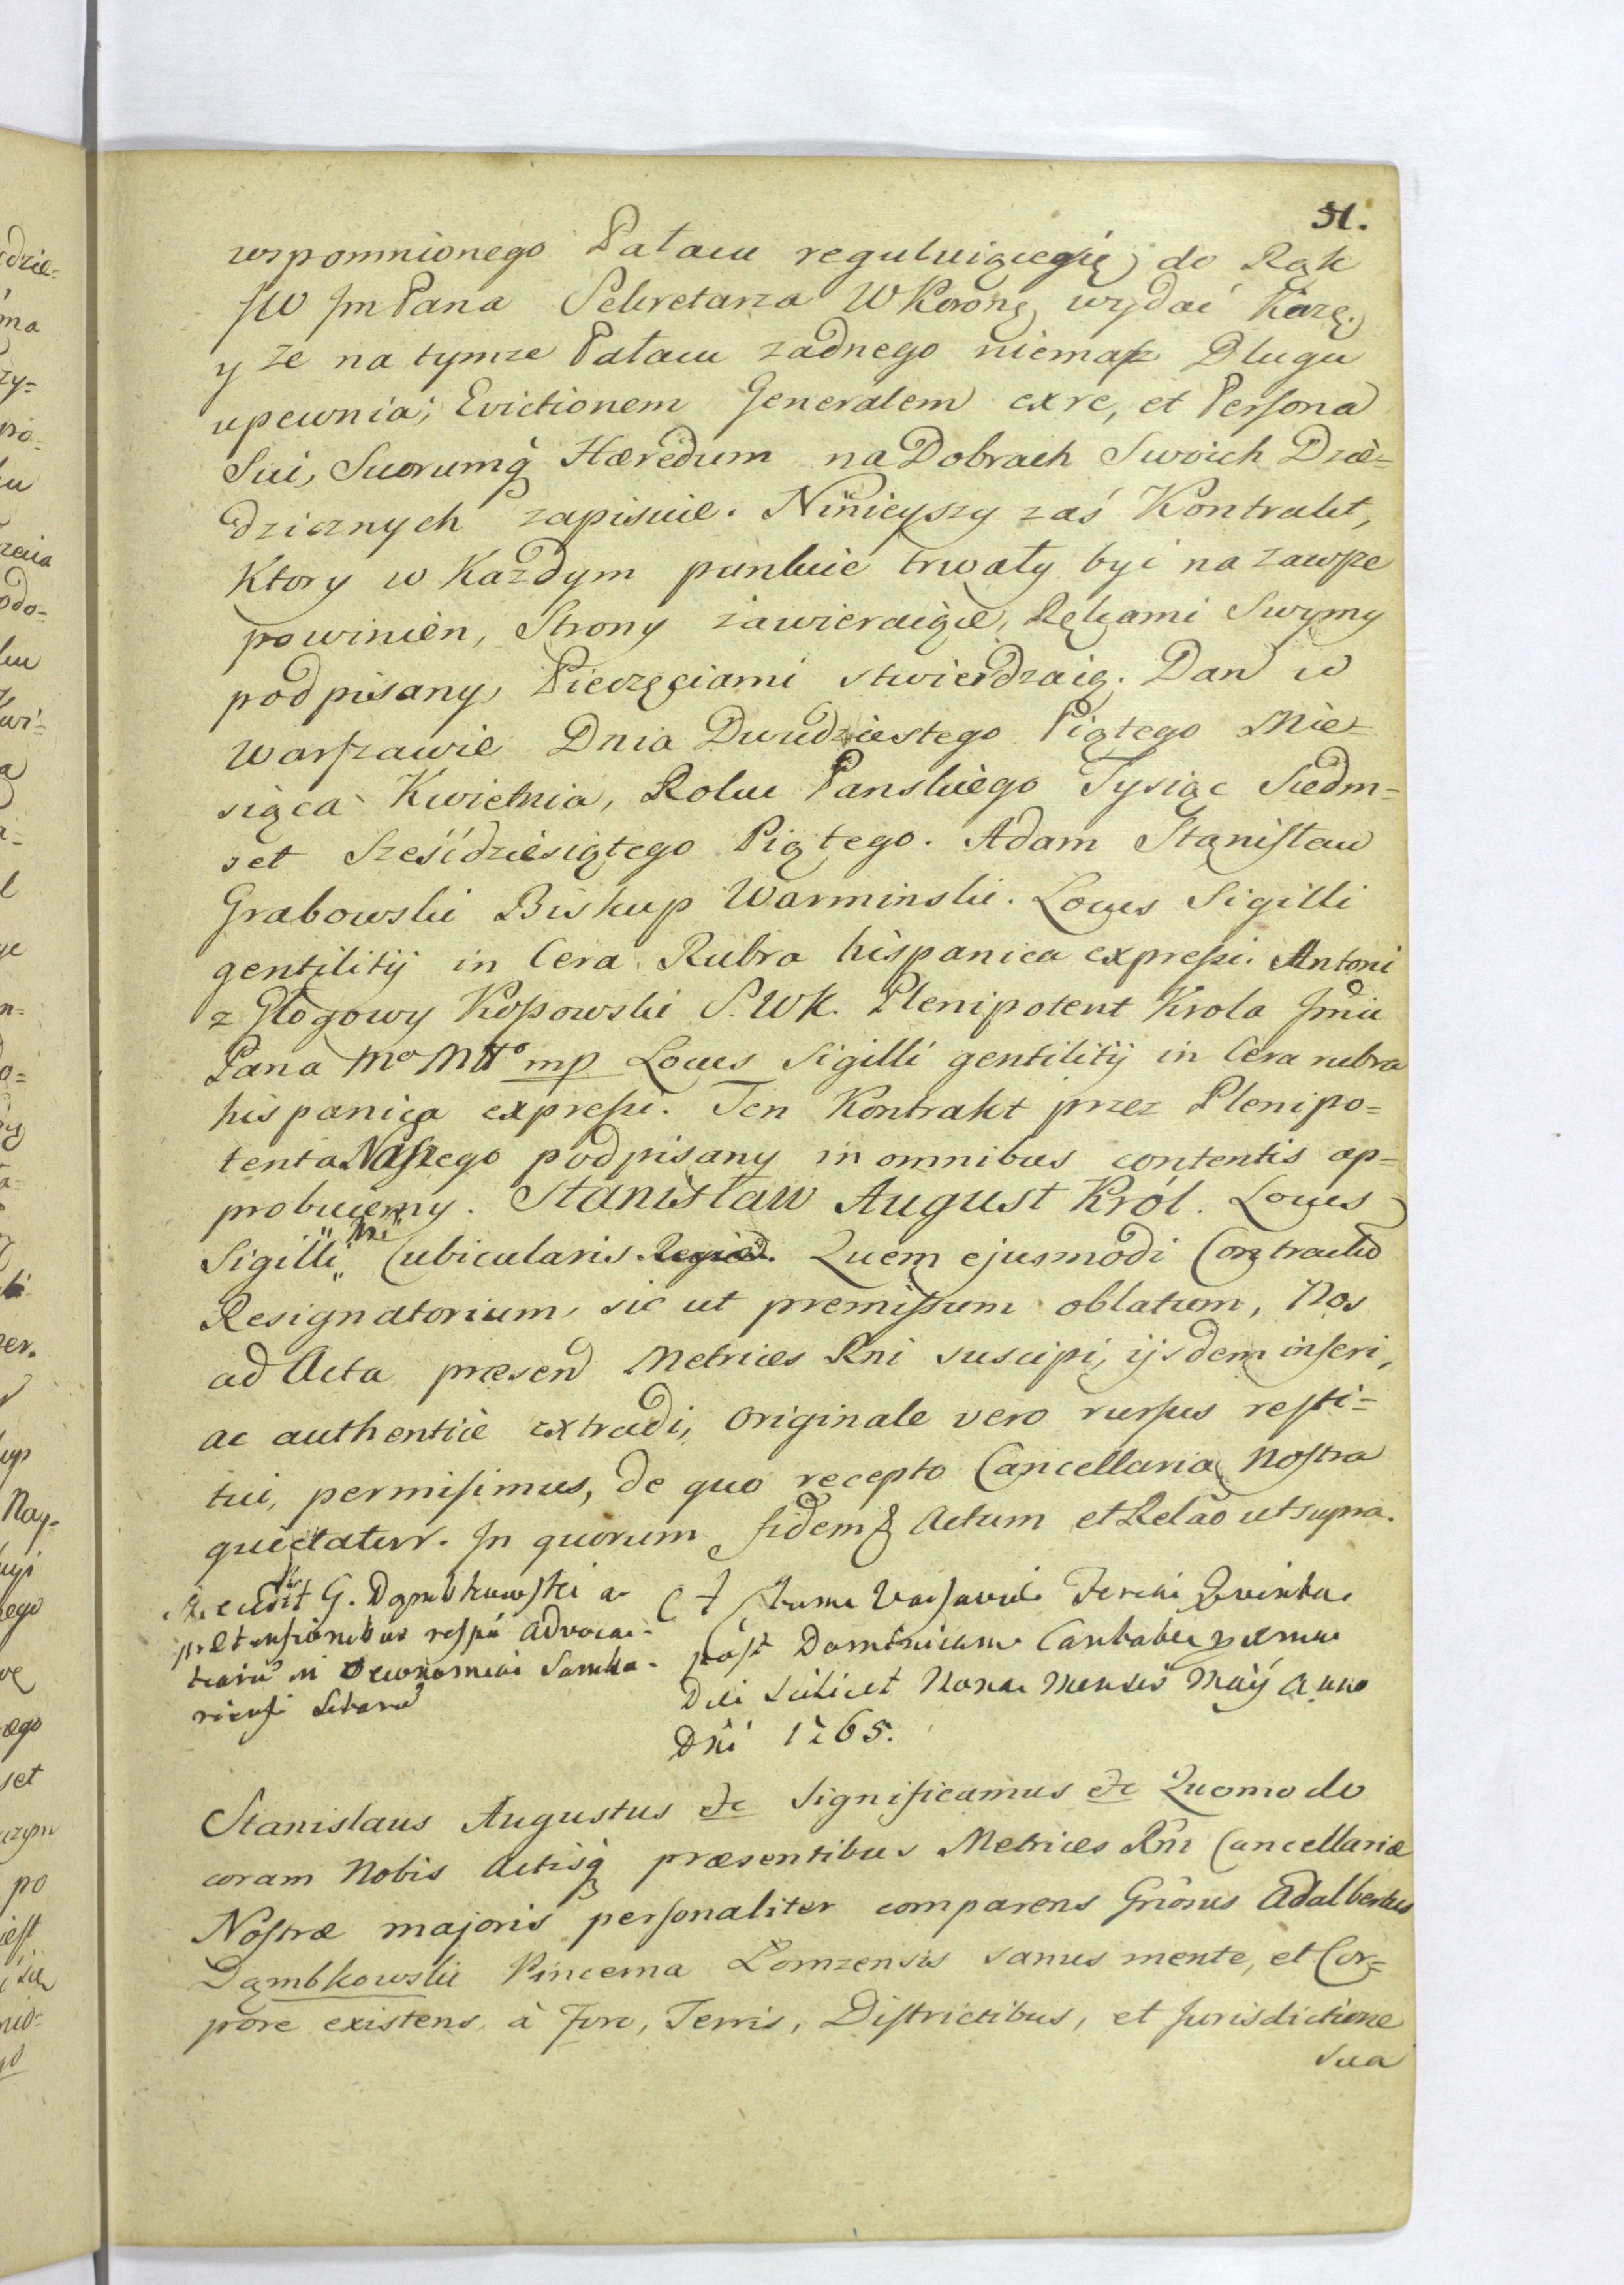 31.
wspomnionego Pałacu reguluiącesię, do Rąk
JW Jm Pana Sekretarza WKoronę, wydać Każę.
y że na tymże Pałacu żadnego niemasz Długu
upewnia; Evictionem Generalem ex re, et Persona
Sui, Suorumq́ Hæredum na Dobrach Swoich Dzie-
dzicznych zapisuie. Ninieyszy zaś Kontrakt,
Ktory w Każdym punkcie trwały być na zawsze
powinien, Strony zawieraiące, Rękami Swymy
podpisany, Pieczęciami stwierdzaią. Dan w
Warszawie Dnia Dwudziestego Piątego Mie-
siąca Kwietnia, Roku Panskiego Tysiąc Siedm-
set Sześćdziesiątego Piątego. Adam Stanisław
Grabowski Biskup Warminski. Locus Sigilli
gentilitij in Cera Rubra hispanica expressi. Antoni
z Głogowy Kossowski S.WK. Plenipotent Krola Jmći
Pana Mo Mtto mp Locus Sigilli gentilitij in Cera rubra
hispanica expressi. Ten Kontrakt przez Plenipo-
tenta Naszego podpisany in omnibus contentis ap-
probuiemy. Stanisław August Król. Locus
Sigilli Cubicularis Regied. Quem ejusmodi Contractū
Resignatorium, sic ut premissum oblatum, Nos
ad Acta præsend Metrices Rni suscipi, ijsdem inseri,
ac authentice extradi, Originale vero rursus resti-
tui, permisimus, de quo recepto Cancellaria Nostra
quietatur. In quorum fidem & Actum et Relaõ ut supra.
Recedit G. Dąmbkowski a
prætensionibus respũ advoca-
tiarũ in Oeconomia Sambo-
riensi Sitarũ
Actum Varsaviæ Feria Quinta
post Dominicam Cantate proxima
Die scilicet Nona Mensis Maij Anno
Dñi 1765.
Stanislaus Augustus &c Significamus &c Quomodo
coram Nobis Actisq́ præsentibus Metrices Rñi Cancellariæ
Nostræ majoris personaliter comparens Gñosus Adalbertus
Dąmbkowski Pincerna Łomzensis sanus mente, et Cor-
pore existens à Foro, Terris, Districtibus, et Jurisdictione
sua